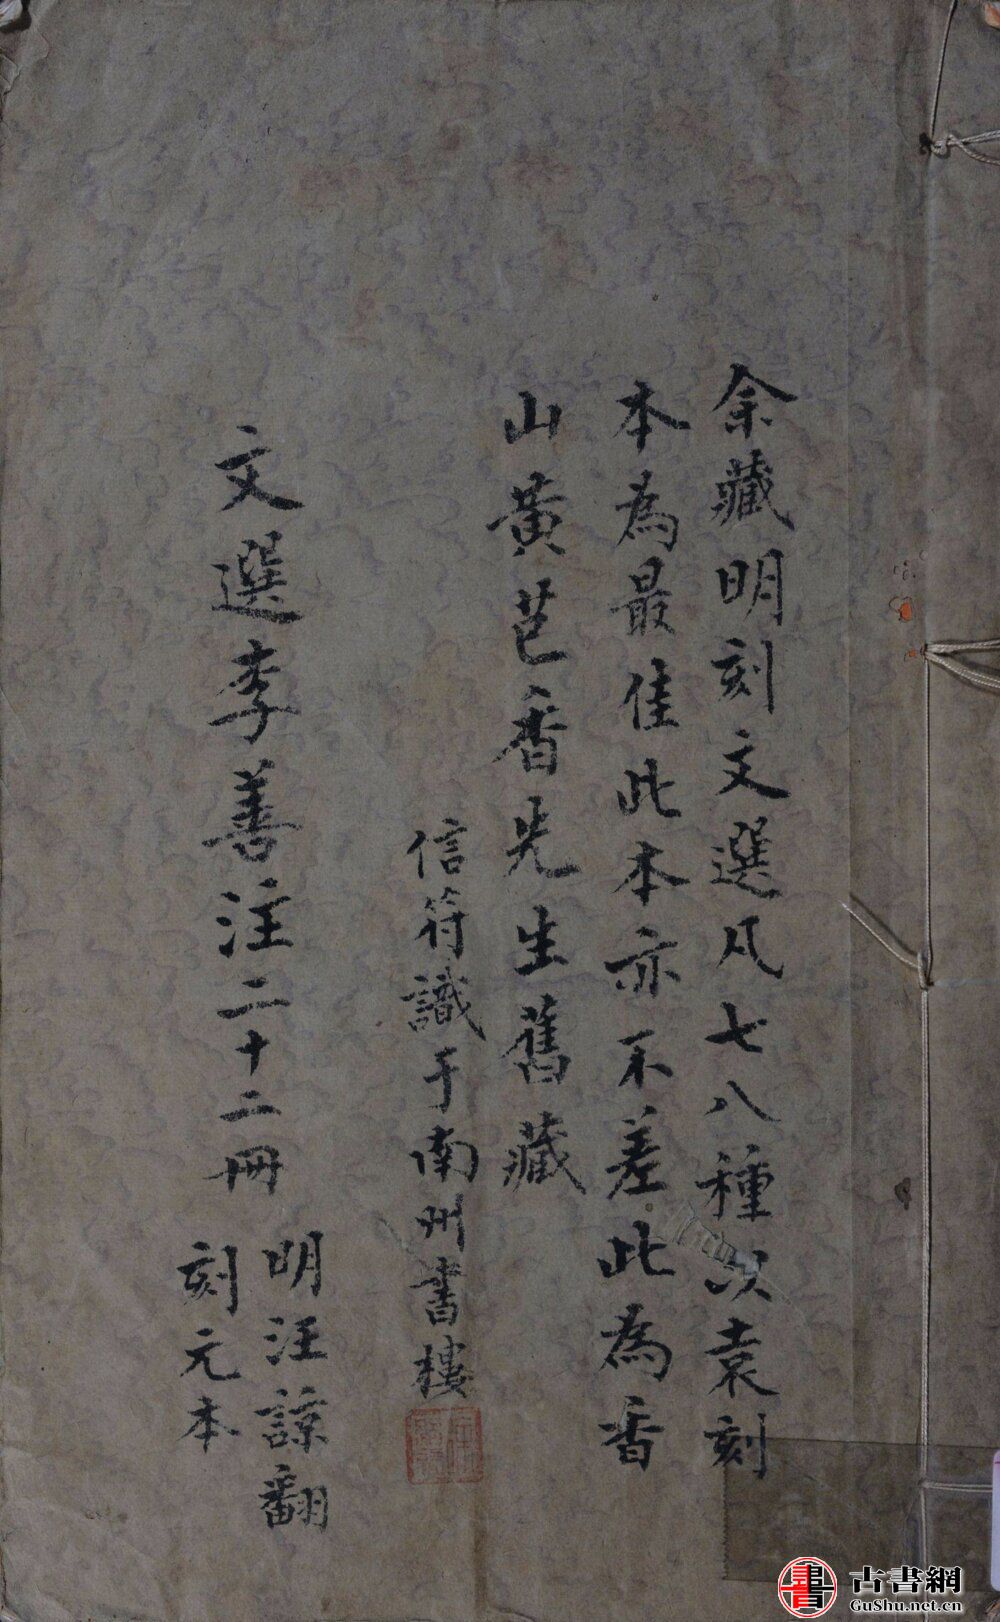 余藏明刻文選凡七八種以袁刻
本為最佳此本亦不差此為香
山黃芑香先生舊藏
信符識于南州書樓
文選李善注二十二冊
明汪諒翻
刻元本
古書網
GuShu.net.cn